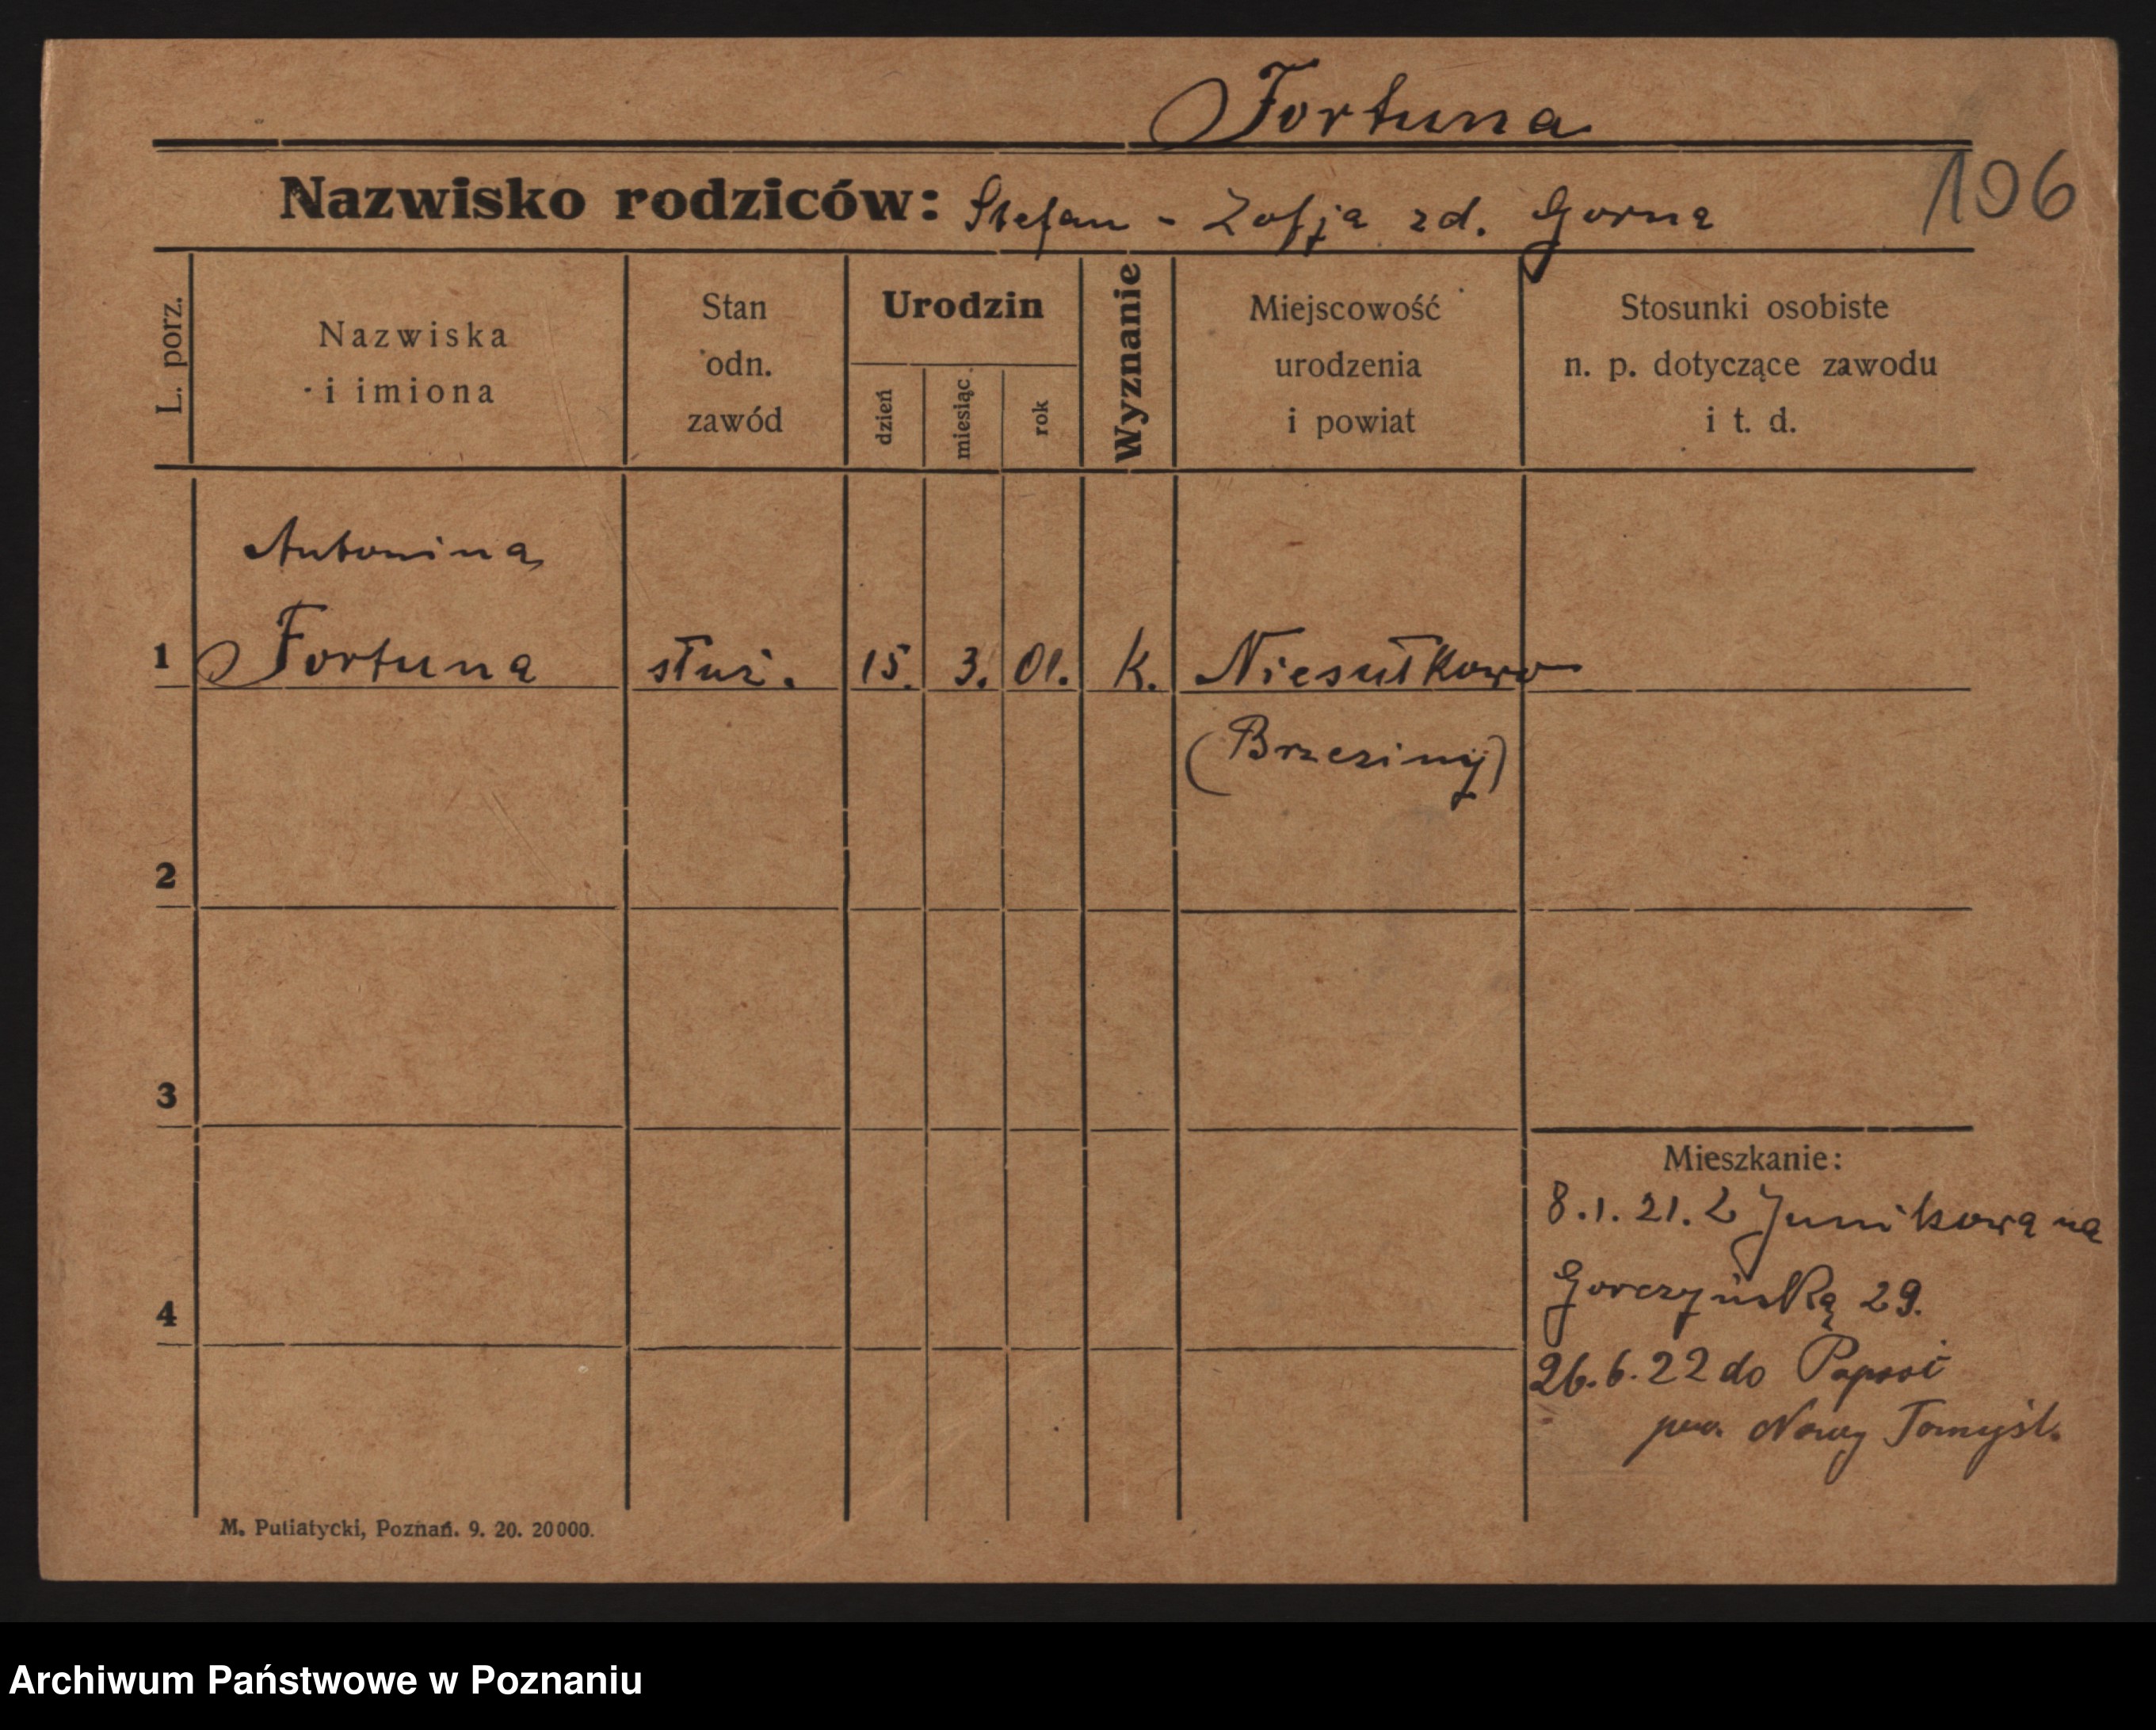 Fortuna
106
Nazwisko rodziców: Stefan - Zofja zd. Gorna
L. porz.
Nazwiska
i imiona
Stan
odn.
zawód
Urodzin
dzień
miesiąc
rok
Wyznanie
Miejscowość
urodzenia
i powiat
Stosunki osobiste
n. p. dotyczące zawodu
i t. d.
Antonina
1 Fortuna służ. 15. 3. 01. k. Niesułkowo
(Brzeziny)
2
3
4
Mieszkanie:
8.1.21. z Junikowa na
Gorczyńską 29.
26.6.22 do
pow. Nowy Tomyśl.
M. Putiatycki, Poznań. 9. 20. 20000.
Archiwum Państwowe w Poznaniu